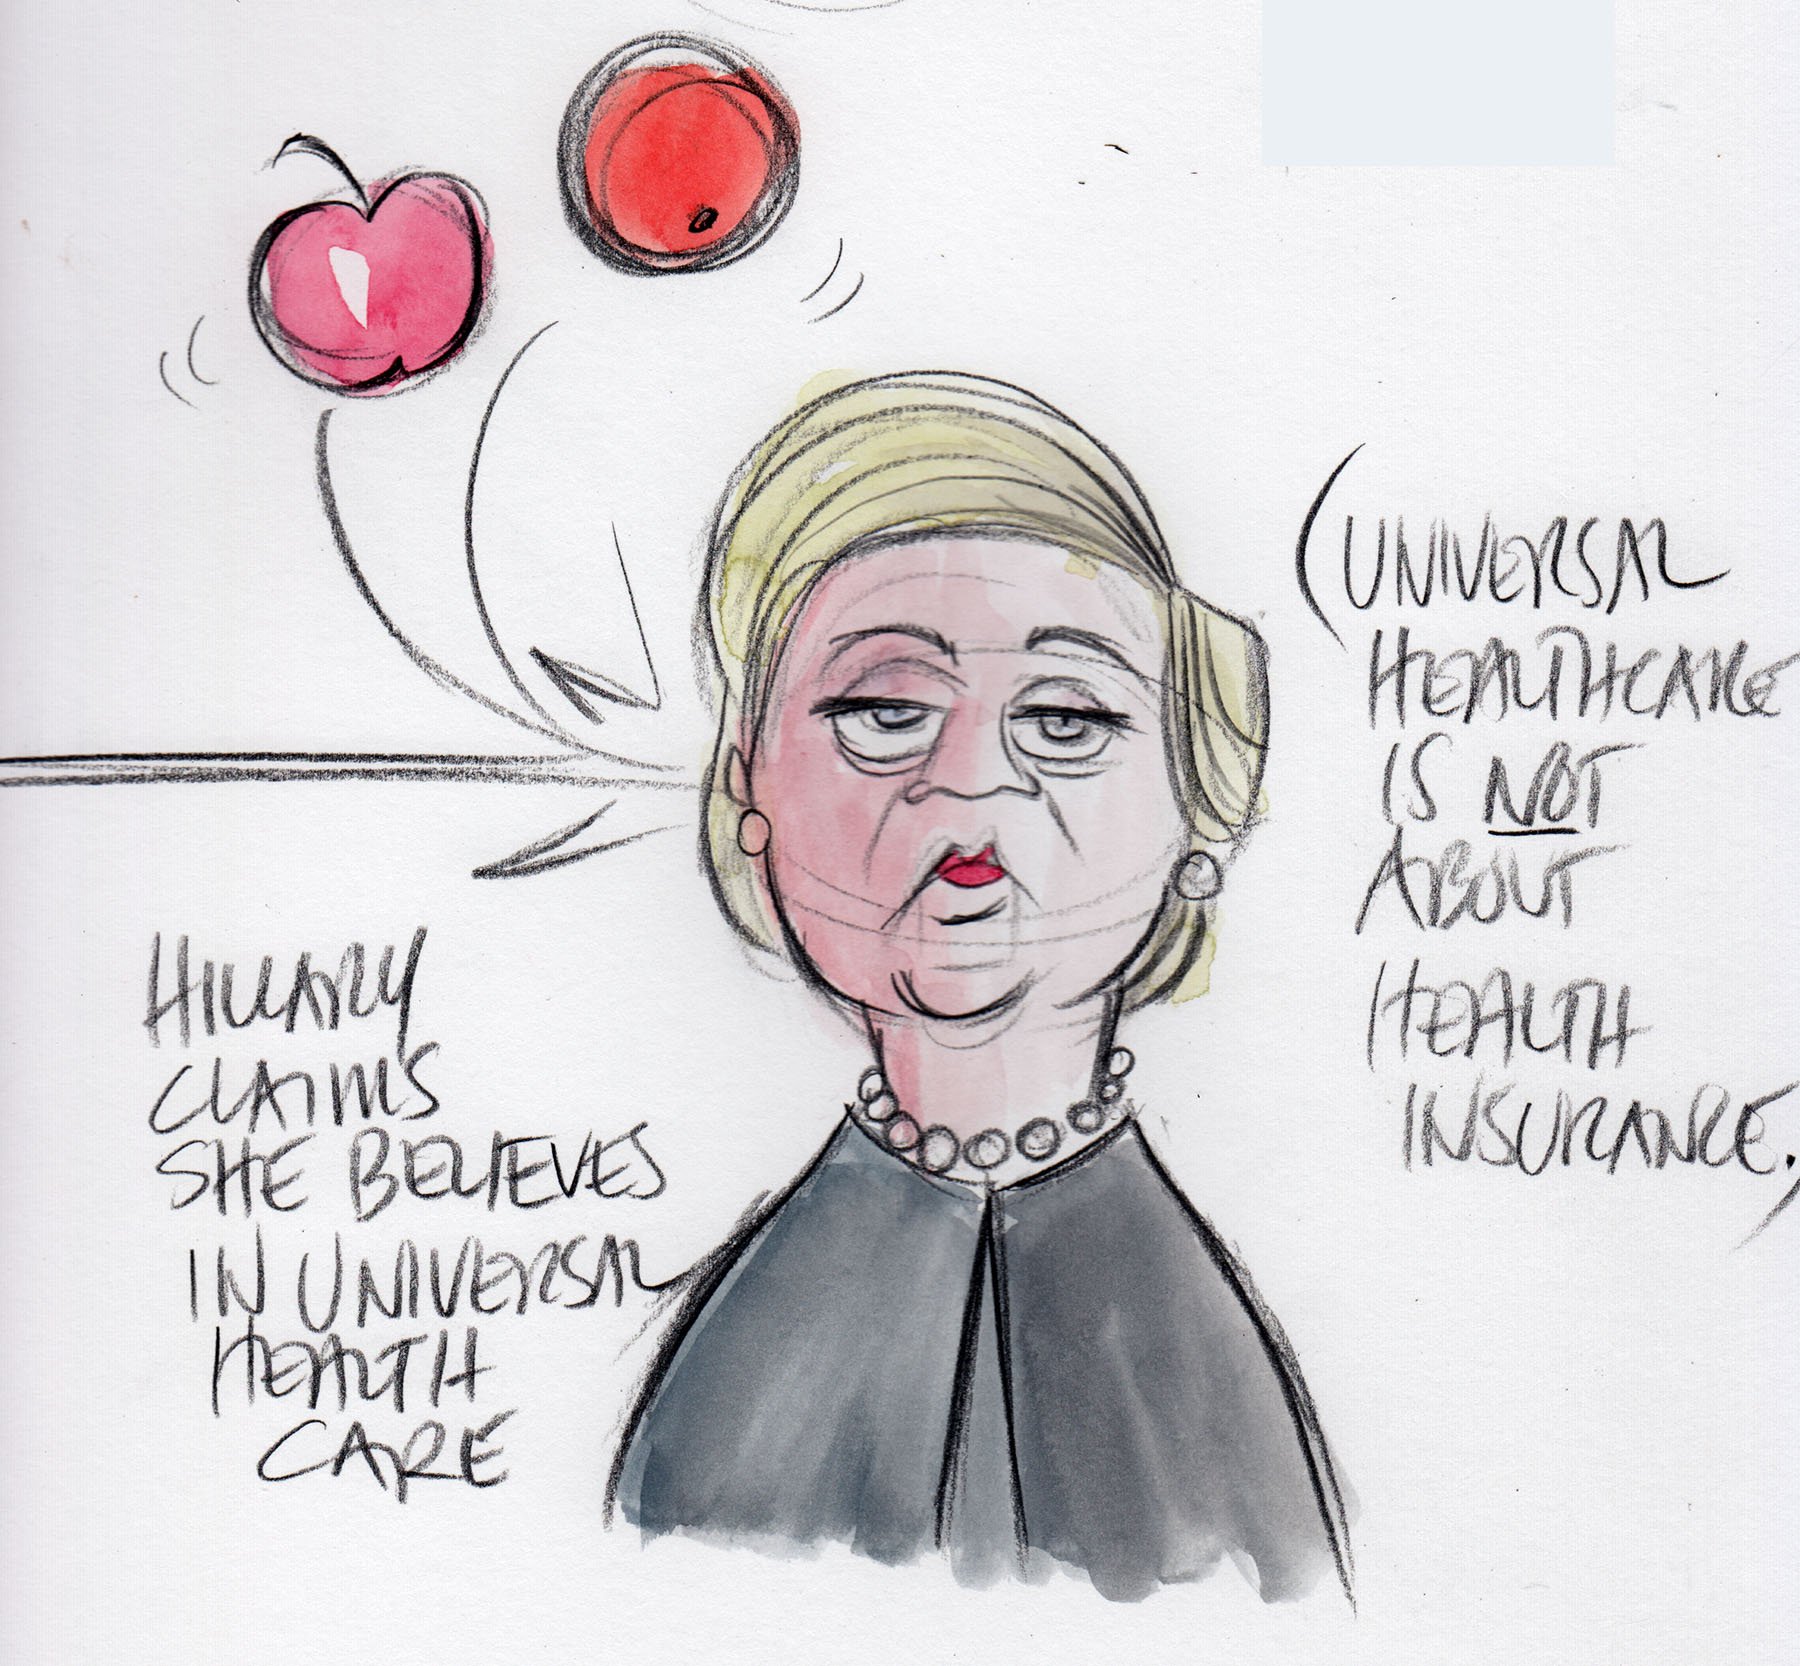 HILLARY
CLAIMS
SHE BELIEVES
IN UNIVERSAL
HEALTH
CARE
(UNIVERSAL
HEALTHCARE
IS NOT
ABOUT
HEALTH
INSURANCE.)